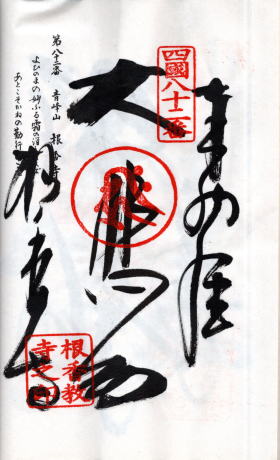 奉納経
四國八十二番
大
根香寺
第八十二番 青峰山 根香寺
よひのまの妙ふる霜の消
あとこそかねの勤行
根香教
寺之印